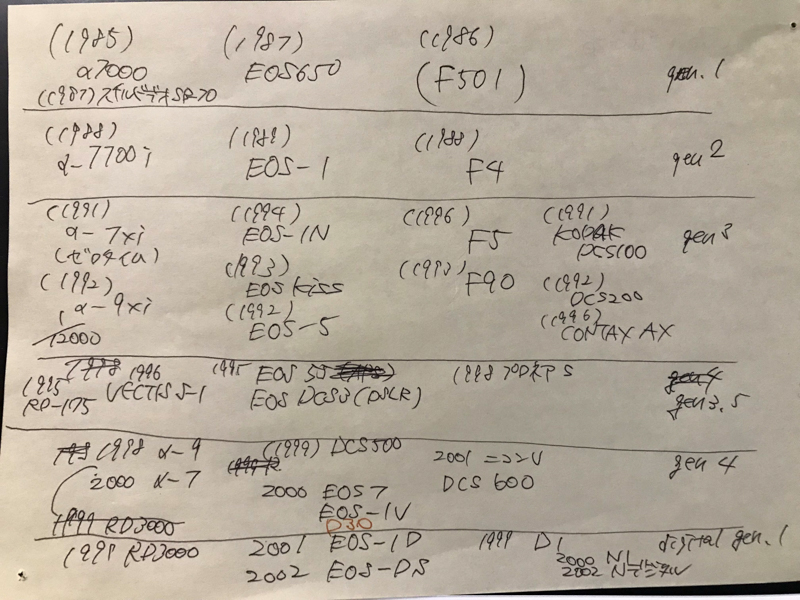 (1985) (1987) (1986)
α7000 EOS650 (F501) gen.1
(1987) スチルビデオSB-70
(1988) (1989) (1988)
α-7700i EOS-1 F4 gen 2
(1991) (1994) (1996) (1991)
α-7xi EOS-1N F5 KODAK gen3
(ゼロタイム) DCS100
(1992) (1993) (1992) F90 (1992)
α-9xi EOS Kiss DCS200
(1992) (1996)
12000 EOS-5 CONTAX AX
1998 1996 1995 EOS 55 1998 プロネア S gen4
1995 VECTIS S-1 EOS DCS3 (DSLR) gen3.5
RD-175
1998 α-9 (1999) DCS500 2001 gen 4
2000 α-7 2000 EOS7 DCS 600
EOS-1V
1999 RD3000 D30
1999 RD3000 2001 EOS-1D 1999 D1 digital gen.1
2002 EOS-DS 2000
2002 Nデジタル